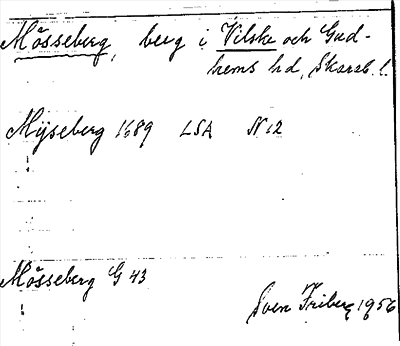 Mösseberg, berg i Vilske och Gud-
hems hd, Skarab. l.
Mÿseberg 1689 LSA N 12
Mösseberg G 43
Sven Friberg 1956